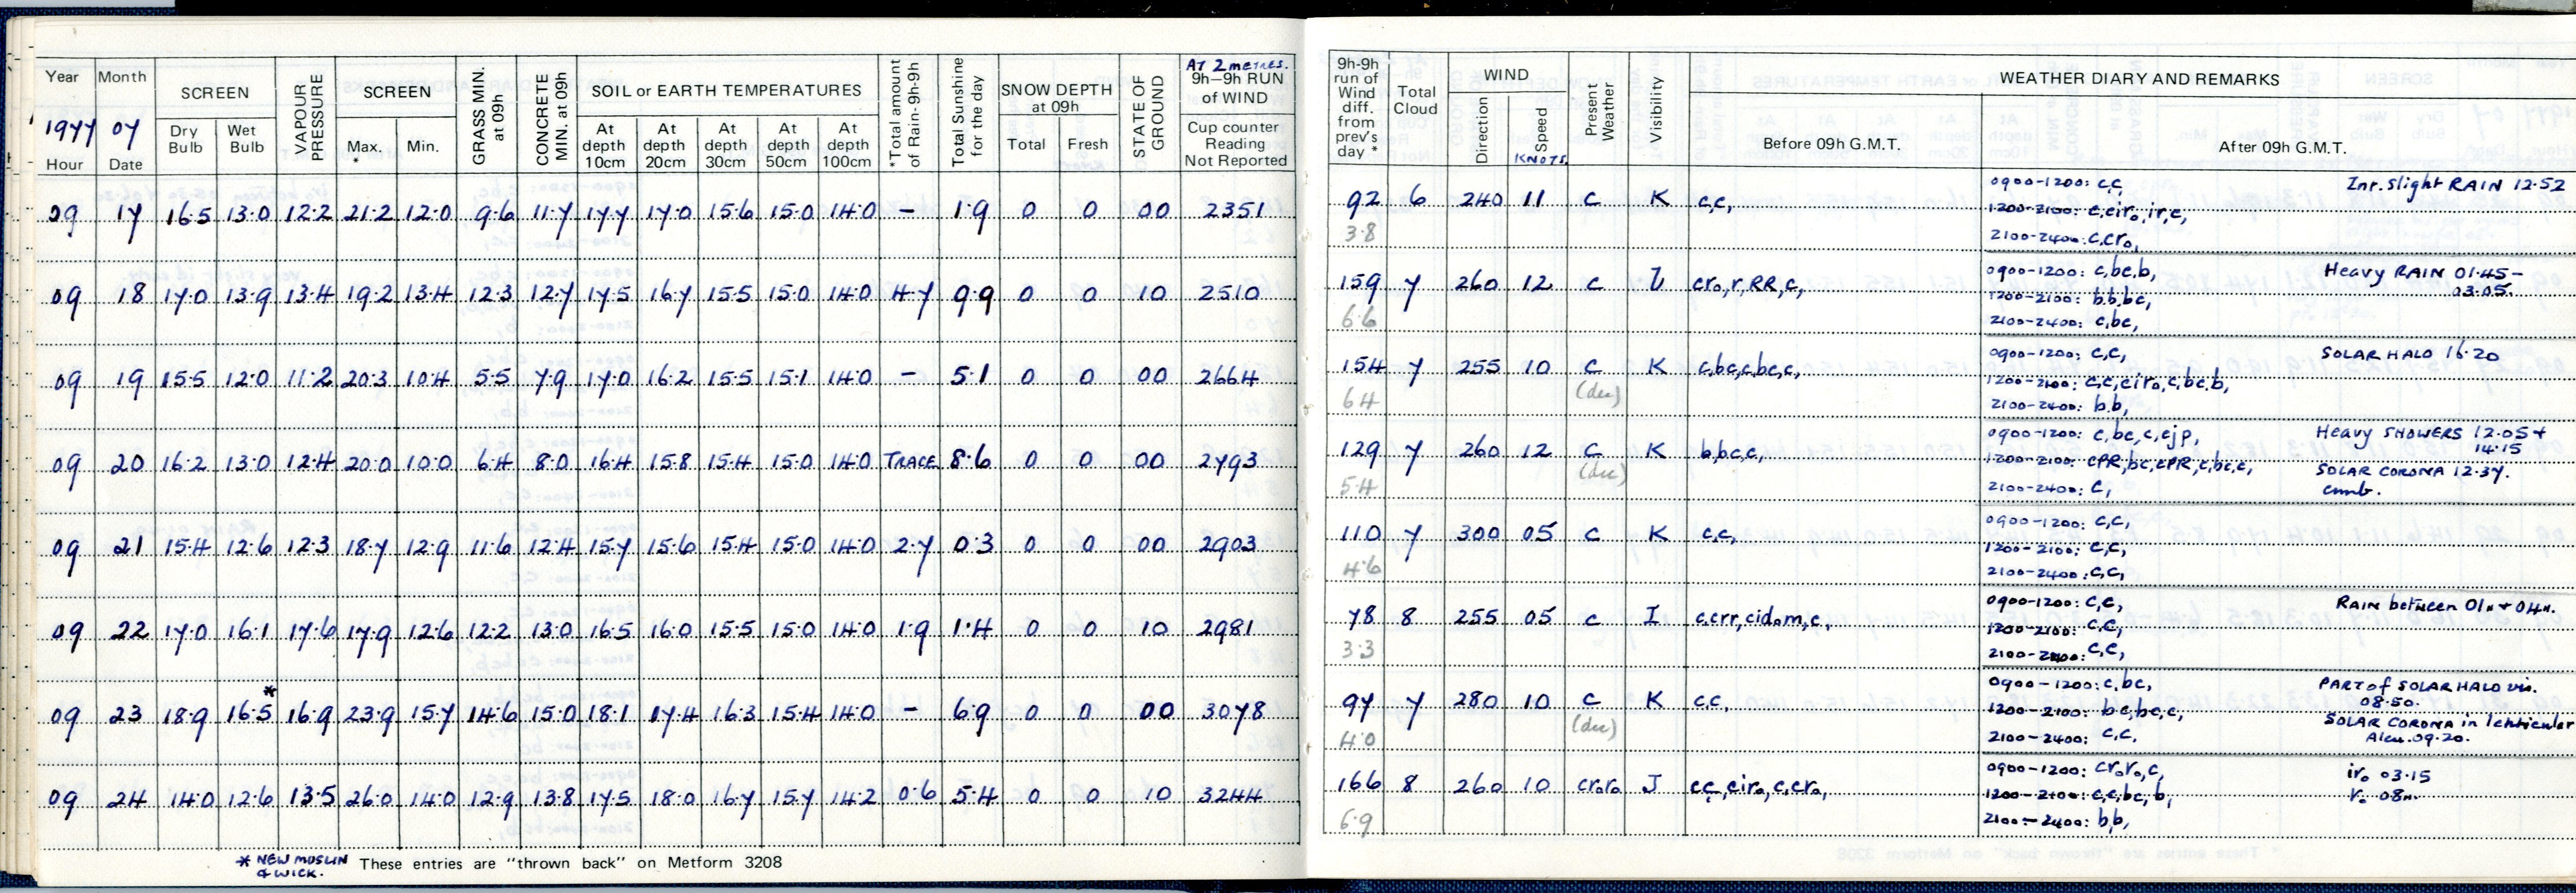 Year Month SCREEN VAPOUR PRESSURE SCREEN GRASS MIN. at 09h CONCRETE MIN. at 09h SOIL or EARTH TEMPERATURES *Total amount of Rain-9h-9h Total Sunshine for the day SNOW DEPTH at 09h STATE OF GROUND AT 2 METRES. 9h-9h RUN of WIND
1977 07 Dry Bulb Wet Bulb Max. * Min. At depth 10cm At depth 20cm At depth 30cm At depth 50cm At depth 100cm Total Fresh Cup counter Reading Not Reported
Hour Date
09 17 16.5 13.0 12.2 21.2 12.0 9.6 11.7 17.7 17.0 15.6 15.0 14.0 – 1.9 0 0 00 2351
09 18 17.0 13.9 13.4 19.2 13.4 12.3 12.7 17.5 16.7 15.5 15.0 14.0 4.7 9.9 0 0 10 2510
09 19 15.5 12.0 11.2 20.3 10.4 5.5 7.9 17.0 16.2 15.5 15.1 14.0 – 5.1 0 0 00 2664
09 20 16.2 13.0 12.4 20.0 10.0 6.4 8.0 16.4 15.8 15.4 15.0 14.0 TRACE 8.6 0 0 00 2793
09 21 15.4 12.6 12.3 18.7 12.9 11.6 12.4 15.7 15.6 15.4 15.0 14.0 2.7 0.3 0 0 00 2903
09 22 17.0 16.1 17.6 17.9 12.6 12.2 13.0 16.5 16.0 15.5 15.0 14.0 1.9 1.4 0 0 10 2981
*
09 23 18.9 16.5 16.9 23.9 15.7 14.6 15.0 18.1 17.4 16.3 15.4 14.0 – 6.9 0 0 00 3078
09 24 14.0 12.6 13.5 26.0 14.0 12.9 13.8 17.5 18.0 16.7 15.7 14.2 0.6 5.4 0 0 10 3244
* NEW MUSLIN & WICK.
These entries are "thrown back" on Metform 3208
9h-9h run of Wind diff. from prev's day * Total Cloud WIND Present Weather Visibility WEATHER DIARY AND REMARKS
Direction Speed KNOTS. Before 09h G.M.T. After 09h G.M.T.
92 6 240 11 c K c,c, 0900-1200: c,c, Inr. slight RAIN 12.52
1200-2100: c,cir₀,ir,c,
3.8 2100-2400: c,cr₀,
159 7 260 12 c J cr₀,r,RR,c, 0900-1200: c,bc,b, Heavy RAIN 01.45-
1200-2100: b,b,bc, 03.05.
6.6 2100-2400: c,bc,
154 7 255 10 c K c,bc,c,bc,c, 0900-1200: c,c, SOLAR HALO 16.20
(dec) 1200-2100: c,c,cir₀,c,bc,b,
6.4 2100-2400: b,b,
129 7 260 12 c K b,bc,c, 0900-1200: c,bc,c,cjp, Heavy SHOWERS 12.05 +
14.15
(dec) 1200-2100: cPR,bc,cPR,c,bc,c, SOLAR CORONA 12.37.
5.4 2100-2400: c, cumb.
110 7 300 05 c K c,c, 0900-1200: c,c,
1200-2100: c,c,
4.6 2100-2400: c,c,
78 8 255 05 c I c,crr,cid₀m,c, 0900-1200: c,c, RAIN between 01h + 04h.
1200-2100: c,c,
3.3 2100-2400: c,c,
97 7 280 10 c K c,c, 0900-1200: c,bc, PART of SOLAR HALO vis.
08.50.
(dec) 1200-2100: bc,bc,c, SOLAR CORONA in lenticular
4.0 2100-2400: c,c, Alcu. 09.20.
166 8 260 10 cr₀r₀ J c,c,cir₀,c,cr₀, 0900-1200: cr₀r₀,c, ir₀ 03.15
1200-2100: c,c,bc,b, r₀ 08h.
6.9 2100-2400: b,b,